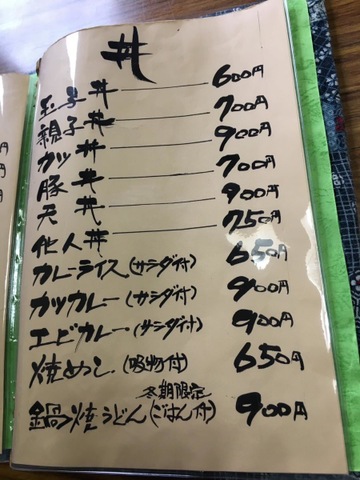 丼
玉子丼 600円
親子丼 700円
カツ丼 900円
豚丼 700円
天丼 900円
他人丼 750円
カレーライス(サラダ付) 650円
カツカレー(サラダ付) 900円
エビカレー(サラダ付) 900円
焼めし(吸物付) 650円
冬期限定
鍋焼うどん(ごはん付) 900円
円
円
円